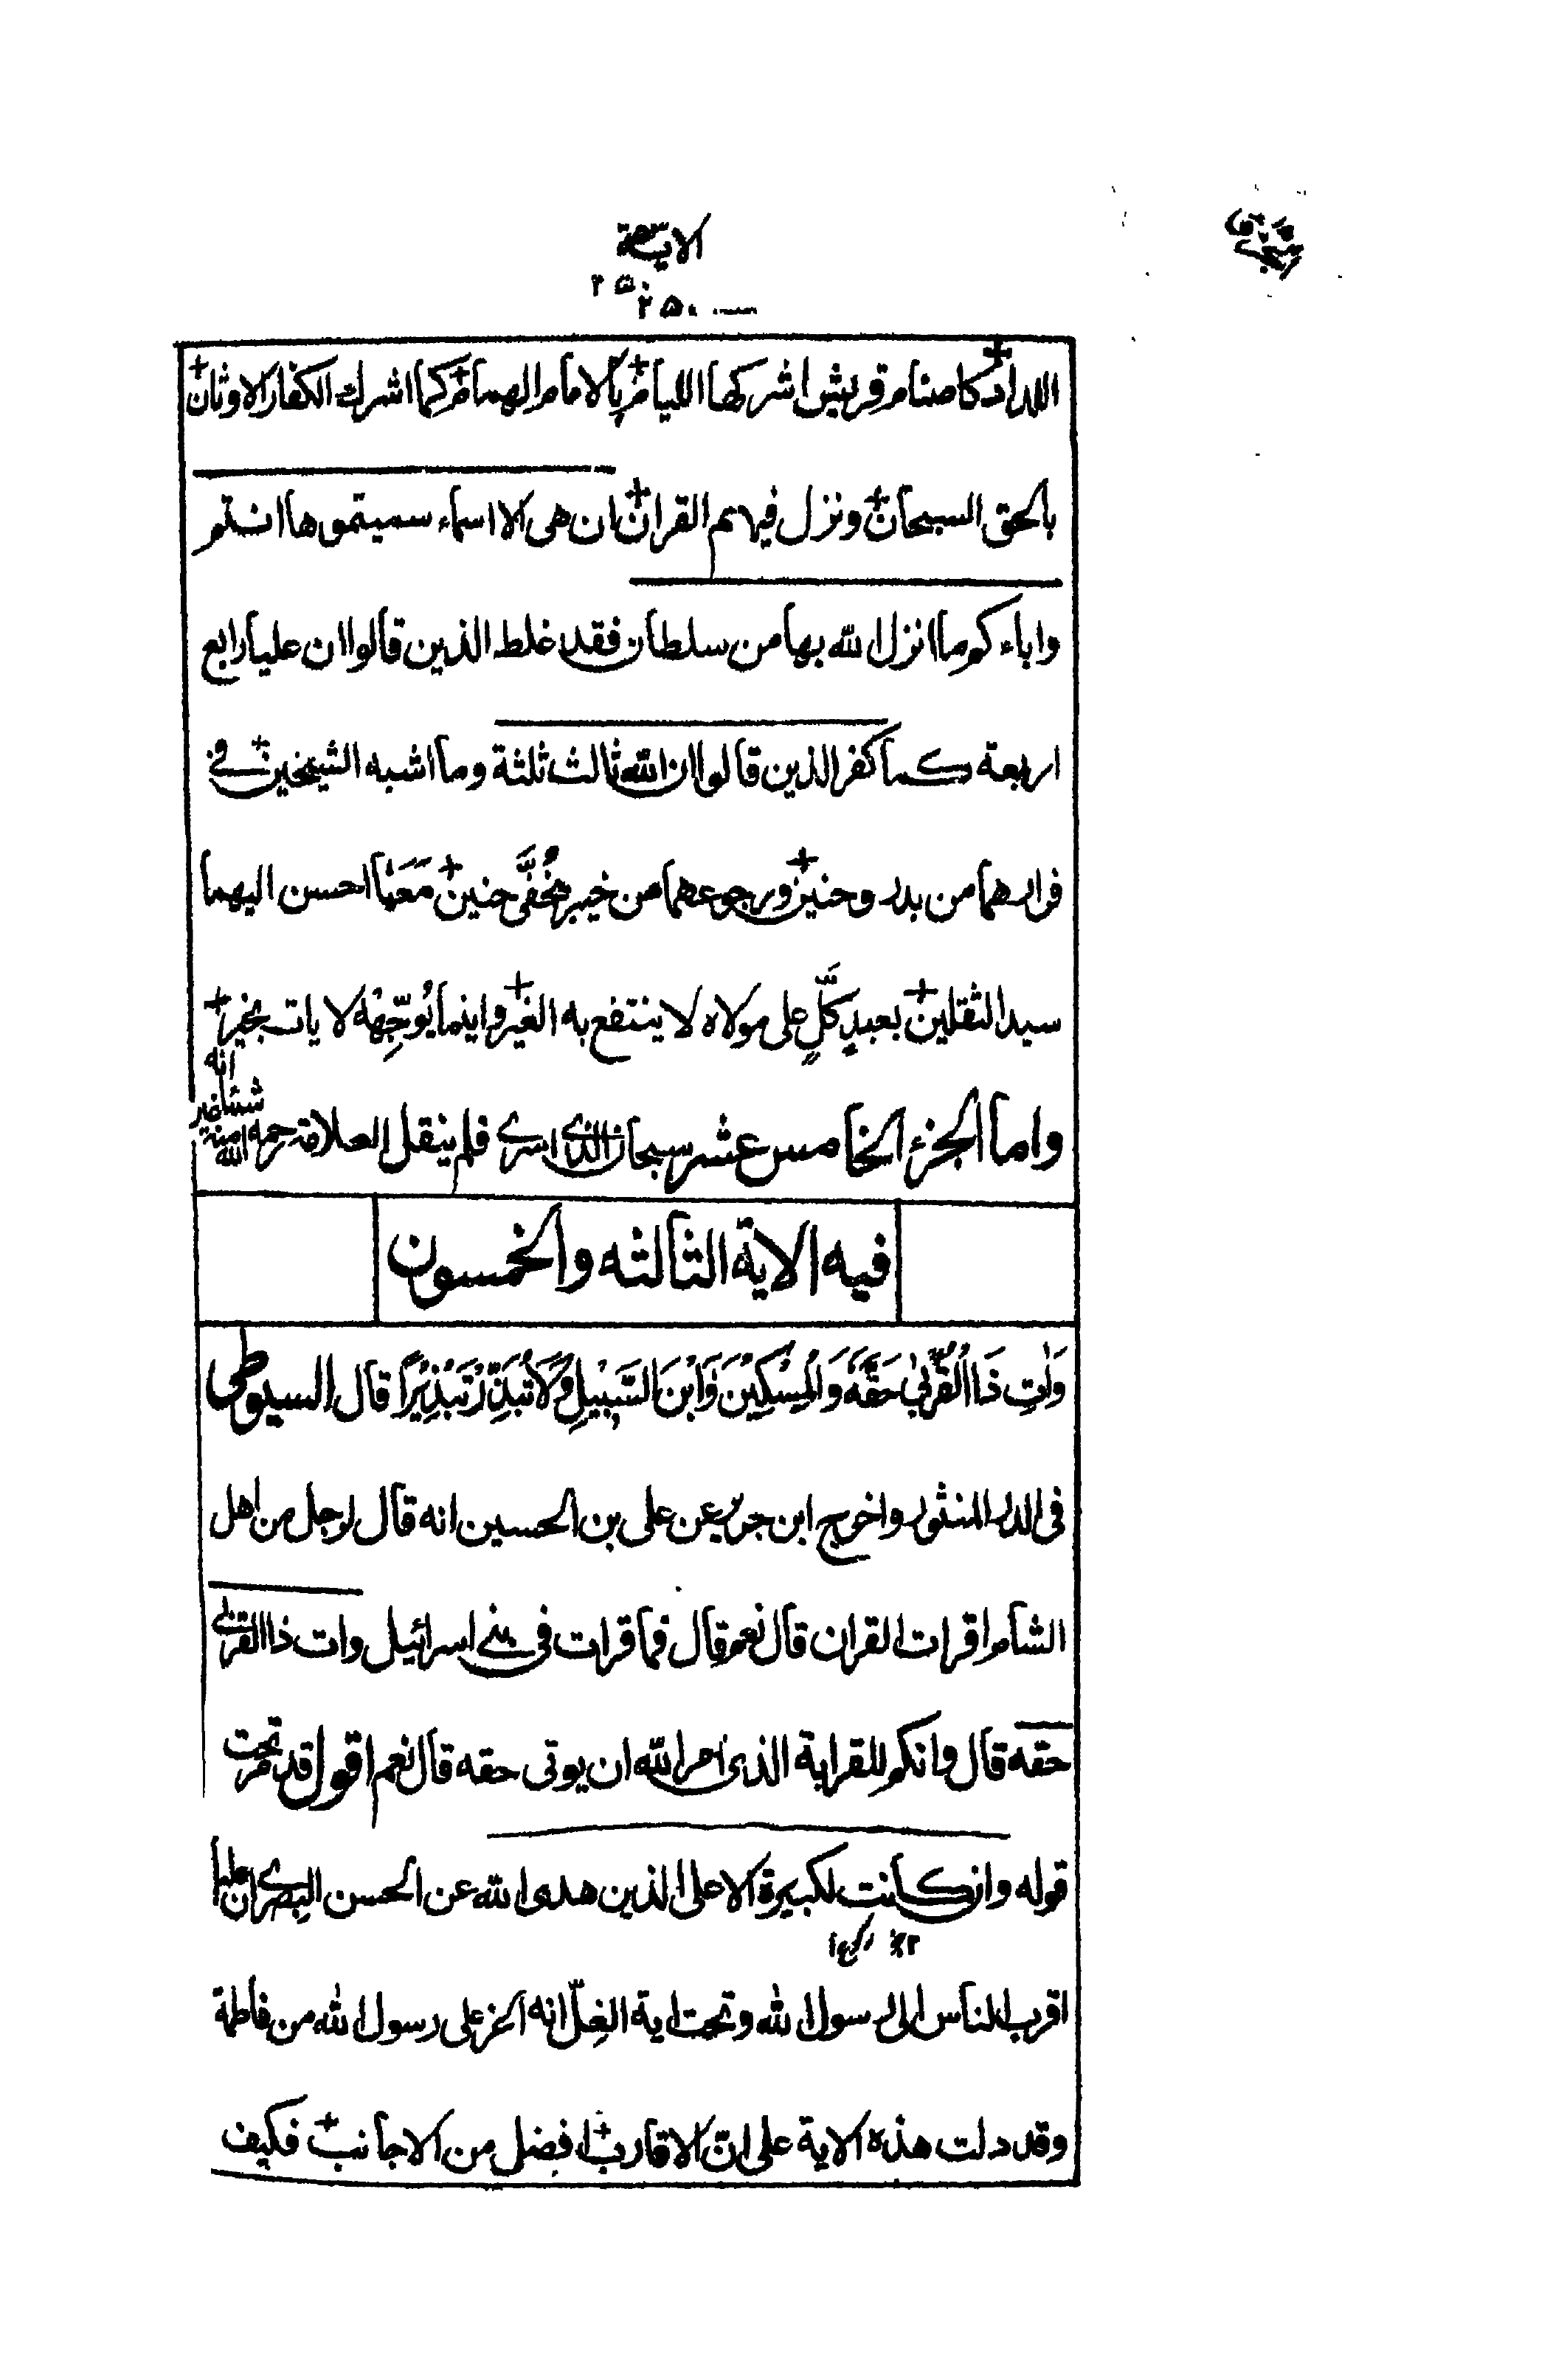 ٢٥٠
٢٥٠
اللداد كاصنام قريش اشركها الليام بالامام الهمام كما اشرك الكفار الاوثان
بالحق السبحان ونزل فيهم القران ان هى الا اسماء سميتموها انتم
واباءكم ما انزل الله بها من سلطان فقد غلط الذين قالوا ان عليا رابع
اربعة كما كفر الذين قالوا ان الله ثالث ثلثة وما اشبه الشيخين في
فرارهما من بدر وحنين ورجوعهما من خيبر بخُفَّى حنين مَعَ ما احسن اليهما
سيد الثقلين بعبدٍ كَلٍّ على مولاه لا ينتفع به الغير واينما يُوَجِّهْهُ لا يات بخير
واما الجزء الخامس عشر سبحان الذى اسرى فلم ينقل العلامة رحمه الله منه
فيه الاية الثالثه والخمسون
وَاٰتِ ذَا الْقُرْبٰى حَقَّهٗ وَالْمِسْكِيْنَ وَابْنَ السَّبِيْلِ وَلَا تُبَذِّرْ تَبْذِيْرًا قال السيوطى
فى الدر المنثور واخرج ابن جرير عن على بن الحسين انه قال لرجل من اهل
الشام اقرات القران قال نعم قال فما قرات فى بنى اسرائيل وات ذا القربى
حقه قال وانكم للقرابة الذى امر الله ان يوتى حقه قال نعم اقول قد مر تحت
قوله وان كانت لكبيرة الا على الذين هدى الله عن الحسن البصرى ان عليا
اقرب الناس الى رسول الله وتحت اية الغِلّ انه اعز على رسول الله من فاطمة
وقد دلت هذه الاية على انّ الاقارب افضل من الاجانب فكيف